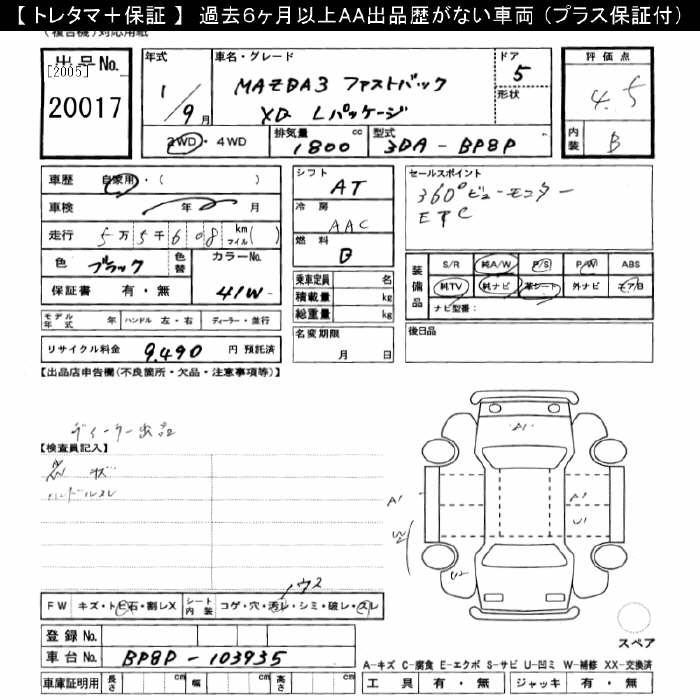 【 トレタマ＋保証 】 過去６ヶ月以上ＡＡ出品歴がない車両（プラス保証付）
(複合機)対応用紙
出品No. 年式 車名・グレード ドア 評価点
[2005] MAZDA3 ファストバック 5
20017 1/9月 XD Lパッケージ 形状 4.5
2WD・4WD 排気量 1800 cc 型式 3DA-BP8P 内装 B
車歴 自家用・( ) シフト AT セールスポイント
車検 年 月 冷房 AAC 360°ビューモニター
走行 5万5千608 km マイル( ) 燃料 ETC
色 ブラック 色替 カラーNo. 41W
保証書 有・無
乗車定員 名
積載量 kg
総重量 kg
装備品 S/R 純A/W P/S P/W ABS
純TV 純ナビ 革シート 外ナビ エアB
ナビ型番：
モデル年式 年 ハンドル 左・右 ディーラー・並行
名変期限 月 日
後日品
リサイクル料金 9,490 円 預託済
【出品店申告欄(不良箇所・欠品・注意事項等)】
【検査員記入】
ハンドルスレ
A1
A1 A1
U1
FW キズ・トビ石・割レX シート内装 コゲ・穴・汚レ・シミ・破レ・スレ
登録No.
車台No. BP8P-103935
スペア
A-キズ C-腐食 E-エクボ S-サビ U-凹ミ W-補修 XX-交換済
車庫証明用 長さ cm 幅 cm 高さ cm 工具 有・無 ジャッキ 有・無